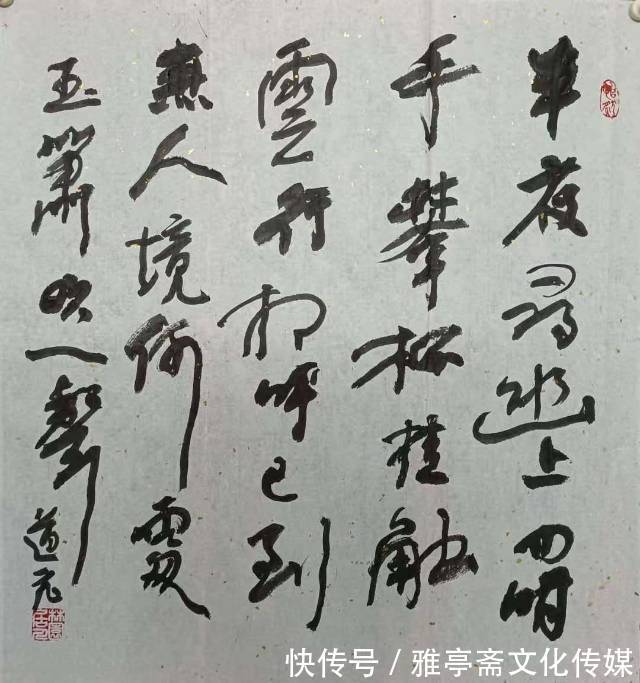 半夜尋幽上四明
手攀松桂触
雲行相呼已到
無人境何處
玉簫吹一聲 道元
快传号 / 雅亭斋文化传媒